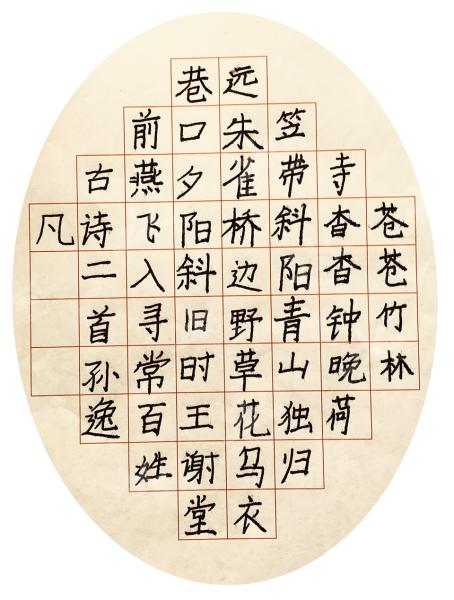 苍苍竹林
寺杳杳钟晚荷
笠带斜阳青山独归
远朱雀桥边野草花乌衣
巷口夕阳斜旧时王谢堂
前燕飞入寻常百姓
古诗二首孙逸
凡